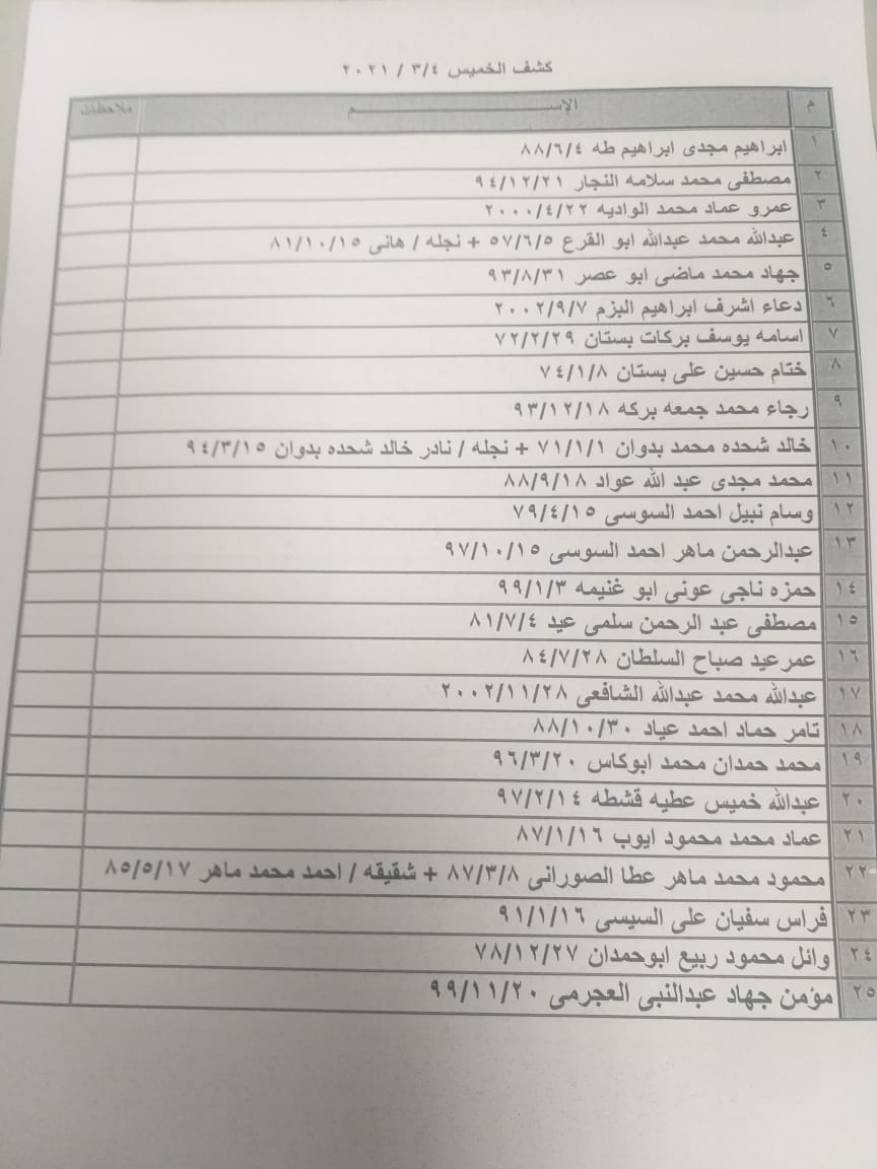 كشف الخميس ٣/٤ / ٢٠٢١
م الإســـــــــم ملاحظات
١ ابراهيم مجدى ابراهيم طه ٨٨/٦/٤
٢ مصطفى محمد سلامه النجار ٩٤/١٢/٢١
٣ عمرو عماد محمد الواديه ٢٠٠٠/٤/٢٢
٤ عبدالله محمد عبدالله ابو القرع ٥٧/٦/٥ + نجله / هانى ٨١/١٠/١٥
٥ جهاد محمد ماضى ابو عصر ٩٣/٨/٣١
٦ دعاء اشرف ابراهيم البزم ٢٠٠٢/٩/٧
٧ اسامه يوسف بركات بستان ٧٢/٢/٢٩
٨ ختام حسين على بستان ٧٤/١/٨
٩ رجاء محمد جمعه بركه ٩٣/١٢/١٨
١٠ خالد شحده محمد بدوان ٧١/١/١ + نجله / نادر خالد شحده بدوان ٩٤/٣/١٥
١١ محمد مجدى عبد الله عواد ٨٨/٩/١٨
١٢ وسام نبيل احمد السوسى ٧٩/٤/١٥
١٣ عبدالرحمن ماهر احمد السوسى ٩٧/١٠/١٥
١٤ حمزه ناجى عونى ابو غنيمه ٩٩/١/٣
١٥ مصطفى عبد الرحمن سلمى عيد ٨١/٧/٤
١٦ عمر عيد صباح السلطان ٨٤/٧/٢٨
١٧ عبدالله محمد عبدالله الشافعى ٢٠٠٢/١١/٢٨
١٨ تامر حماد احمد عياد ٨٨/١٠/٣٠
١٩ محمد حمدان محمد ابوكاس ٩٦/٣/٢٠
٢٠ عبدالله خميس عطيه قشطه ٩٧/٢/١٤
٢١ عماد محمد محمود ايوب ٨٧/١/١٦
٢٢ محمود محمد ماهر عطا الصورانى ٨٧/٣/٨ + شقيقه / احمد محمد ماهر ٨٥/٥/١٧
٢٣ فراس سفيان على السيسى ٩١/١/١٦
٢٤ وائل محمود ربيع ابوحمدان ٧٨/١٢/٢٧
٢٥ مؤمن جهاد عبدالنبى العجرمى ٩٩/١١/٢٠